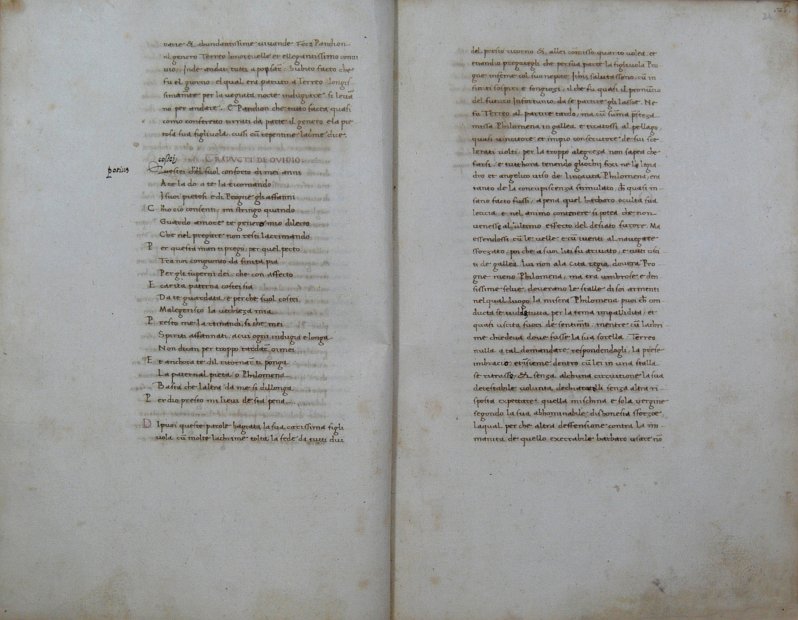 uarie & abundantissime uiuande fece Pandion
al genero Terreo honoreuelle et ellegantissimo conui
uio. Inde andati tutti a posar. Subito facto che
fu el giorno, el qual era paruto a Terreo longis
simamente per la uegiata nocte indugiare si leua
no per andare. E Pandion che tutto facea quasi
como constretto tirrati da parte il genero e la pie
tosa sua figliuola, cusi cum repentine lachrime dice.
costei
TRADVCTI DE OVIDIO
patius
Questei ch'el suol conforto di mei anni
A te la do a te la ricomando
I suoi pietosi e di Progne gli affanni
C Ihan cio consenti, mi stringo quando
Guardo amore te genero mio dilecto
Che nel pregare non resti lacrimando
P er questa man ti prego, per quel pecto
Tra noi coniuncto da sincta pia
Per gli superni dei che con affecto
E carita paterna costei sia
Da te guardata e perche suol costei
Malegerisce la vechieza mia
P resto me la rimandi, si che mei
Spiriti affannati, a cui ogni indugia e longa
Non duran per troppo tardar, o mei
E t anchora te dil ritornar ti ponga
La paternal pieta o Philomena
Basta che l'altra da me si dillonga
P er dio presto mi lieui de sta pena
D ipuoi queste parole basata la sua carissima figli
uola cum molte lachrime tolta la fede da tutti dui
del presto ritorno & allei comisso quanto uolea et
etiandio pregategli che per sua parte la figliuola Pro
gne insieme col suo nepote Ithis salutasseno, cum in
finiti sospiri e singiozi, il che fu quasi il pronuntio
del futuro infortunio da se partire gli lasse. Ne
fu Terreo al partire tardo, ma cum suma presteza
missa Philomena in gallea e tiratosi al pellago
quasi uincitore et impio consecutore de sui sce
lerati uolti, per la troppo alegreza non sapea che
farsi e tutthora tenendo gliochii fixi ne la legia
dro et angelico uiso de linzauta Philomena, en
traneo da la concupiscenza stimulato, di quasi in
sano facto fussi, a pena quel barbaro oculta sua
lencia et nel animo contenere si potea che non
uenesse al ultimo effecto del desiato furore. Ma
essendossi, cum le uelle e cum i uenti al nauigare
sforzato, poi che a suoi liti fu arriuato, e tutti usci
ti de gallea, lui non a la cita regia, doue era Pro
gne meno Philomena, ma tra umbrose e den
sissime selue, doue erano le stalle di soi armenti
nel qual luogo la misera Philomena puoi ch con
ducta se uide, gia per la tema impallidita, et
quasi uscita fuori de sentimenti, mentre cum lachri
me chiedeua doue fusse la sua sorella, Terreo
nulla a tal demandare respondendogli, la prese
in bracio, et insieme dentro cum lei in una stalla
se ritrusso, & senza alchuna circuitione la sua
detestabile uolunta dechiaratali senza altra ri
sposta expectare, quella mischina e sola uergine
segondo la sua abhominabile dishonesta sforzoe
la qual, per che altra deffensione contra la in
manita de quello execrabile barbaro usare no